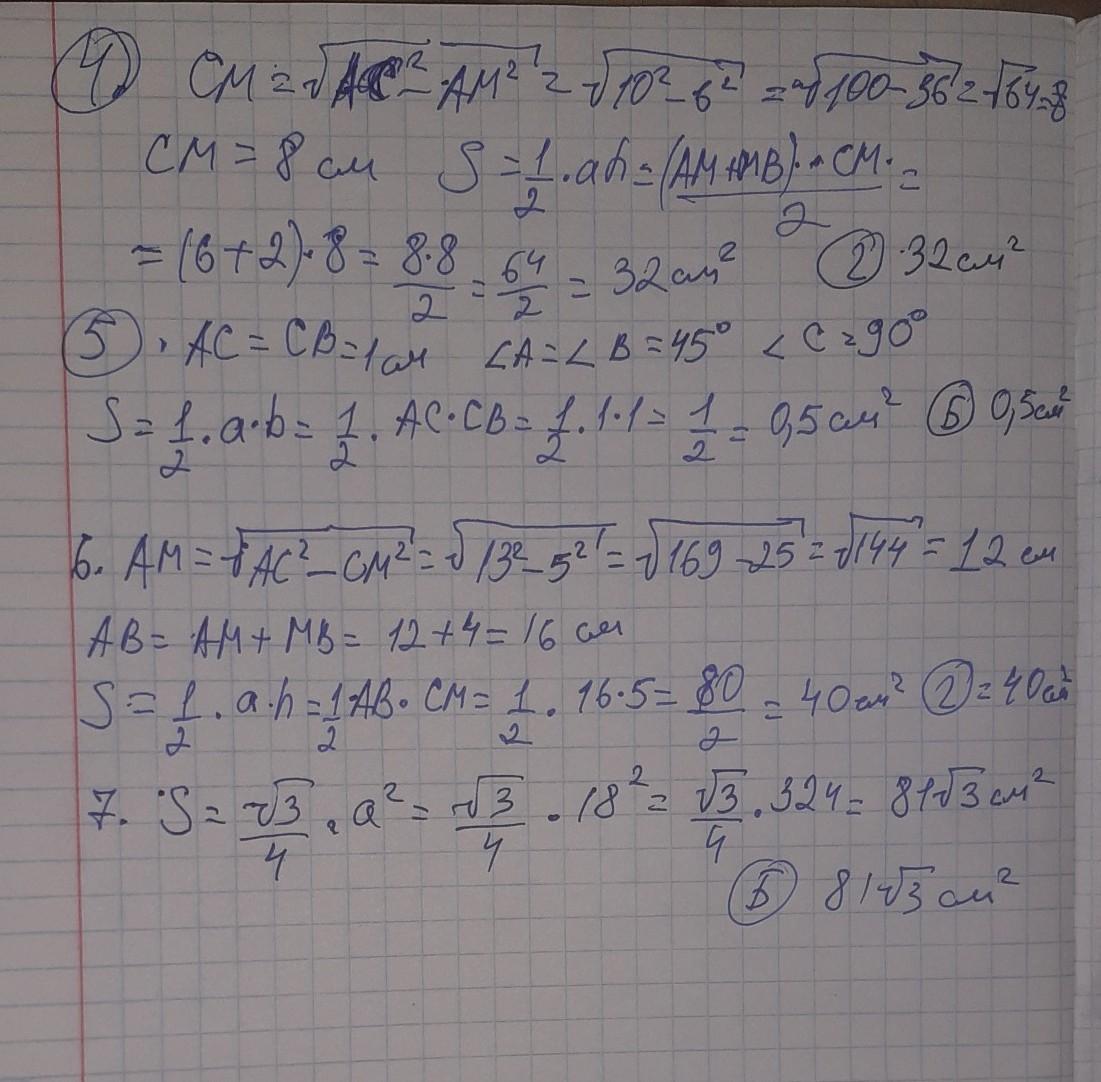 ④ CM = √AC² - AM² = √10² - 6² = √100 - 36 = √64 = 8
CM = 8 см S = 1/2 · ah = (AM + MB) · CM / 2 =
= (6 + 2) · 8 = 8·8/2 = 64/2 = 32 см² Ⓖ 32 см²
⑤ AC = CB = 1 см ∠A = ∠B = 45° ∠C = 90°
S = 1/2 · a · b = 1/2 · AC · CB = 1/2 · 1 · 1 = 1/2 = 0,5 см² Ⓑ 0,5 см²
6. AM = √AC² - CM² = √13² - 5² = √169 - 25 = √144 = 12 см
AB = AM + MB = 12 + 4 = 16 см
S = 1/2 · a · h = 1/2 AB · CM = 1/2 · 16 · 5 = 80/2 = 40 см² Ⓖ = 40 см²
7. S = √3/4 · a² = √3/4 · 18² = √3/4 · 324 = 81√3 см²
Б 81√3 см²